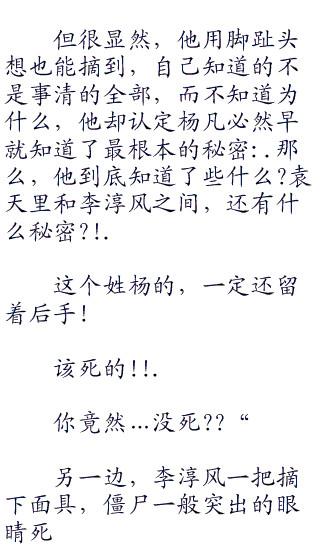 但很显然，他用脚趾头
想也能摘到，自己知道的不
是事清的全部，而不知道为
什么，他却认定杨凡必然早
就知道了最根本的秘密:.那
么，他到底知道了些什么?袁
天里和李淳风之间，还有什
么秘密?!.
这个姓杨的，一定还留
着后手!
该死的!!.
你竟然…没死??“
另一边，李淳风一把摘
下面具，僵尸一般突出的眼
睛死